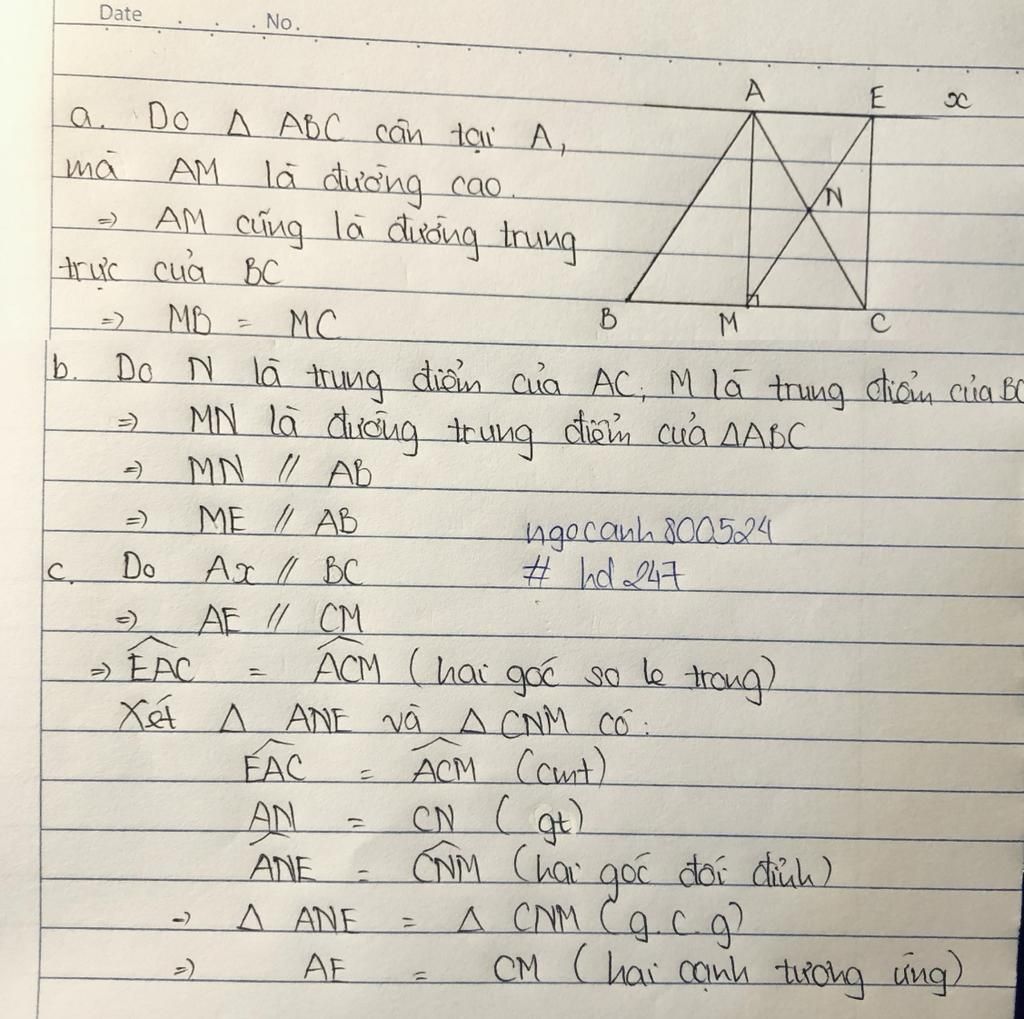 Date . . . No.
A E x
N
B M C
a. Do Δ ABC cân tại A,
mà AM là đường cao.
⇒ AM cũng là đường trung
trực của BC
⇒ MB = MC
b. Do N là trung điểm của AC, M là trung điểm của BC
⇒ MN là đường trung điểm của ΔABC
⇒ MN // AB
⇒ ME // AB
ngocanh800524
# hd247
c. Do Ax // BC
⇒ AE // CM
⇒ \widehat{EAC} = \widehat{ACM} (hai góc so le trong)
Xét Δ ANE và Δ CNM có:
\widehat{EAC} = \widehat{ACM} (cmt)
AN = CN (gt)
\widehat{ANE} = \widehat{CNM} (hai góc đối đỉnh)
⇒ Δ ANE = Δ CNM (g.c.g)
⇒ AE = CM (hai cạnh tương ứng)